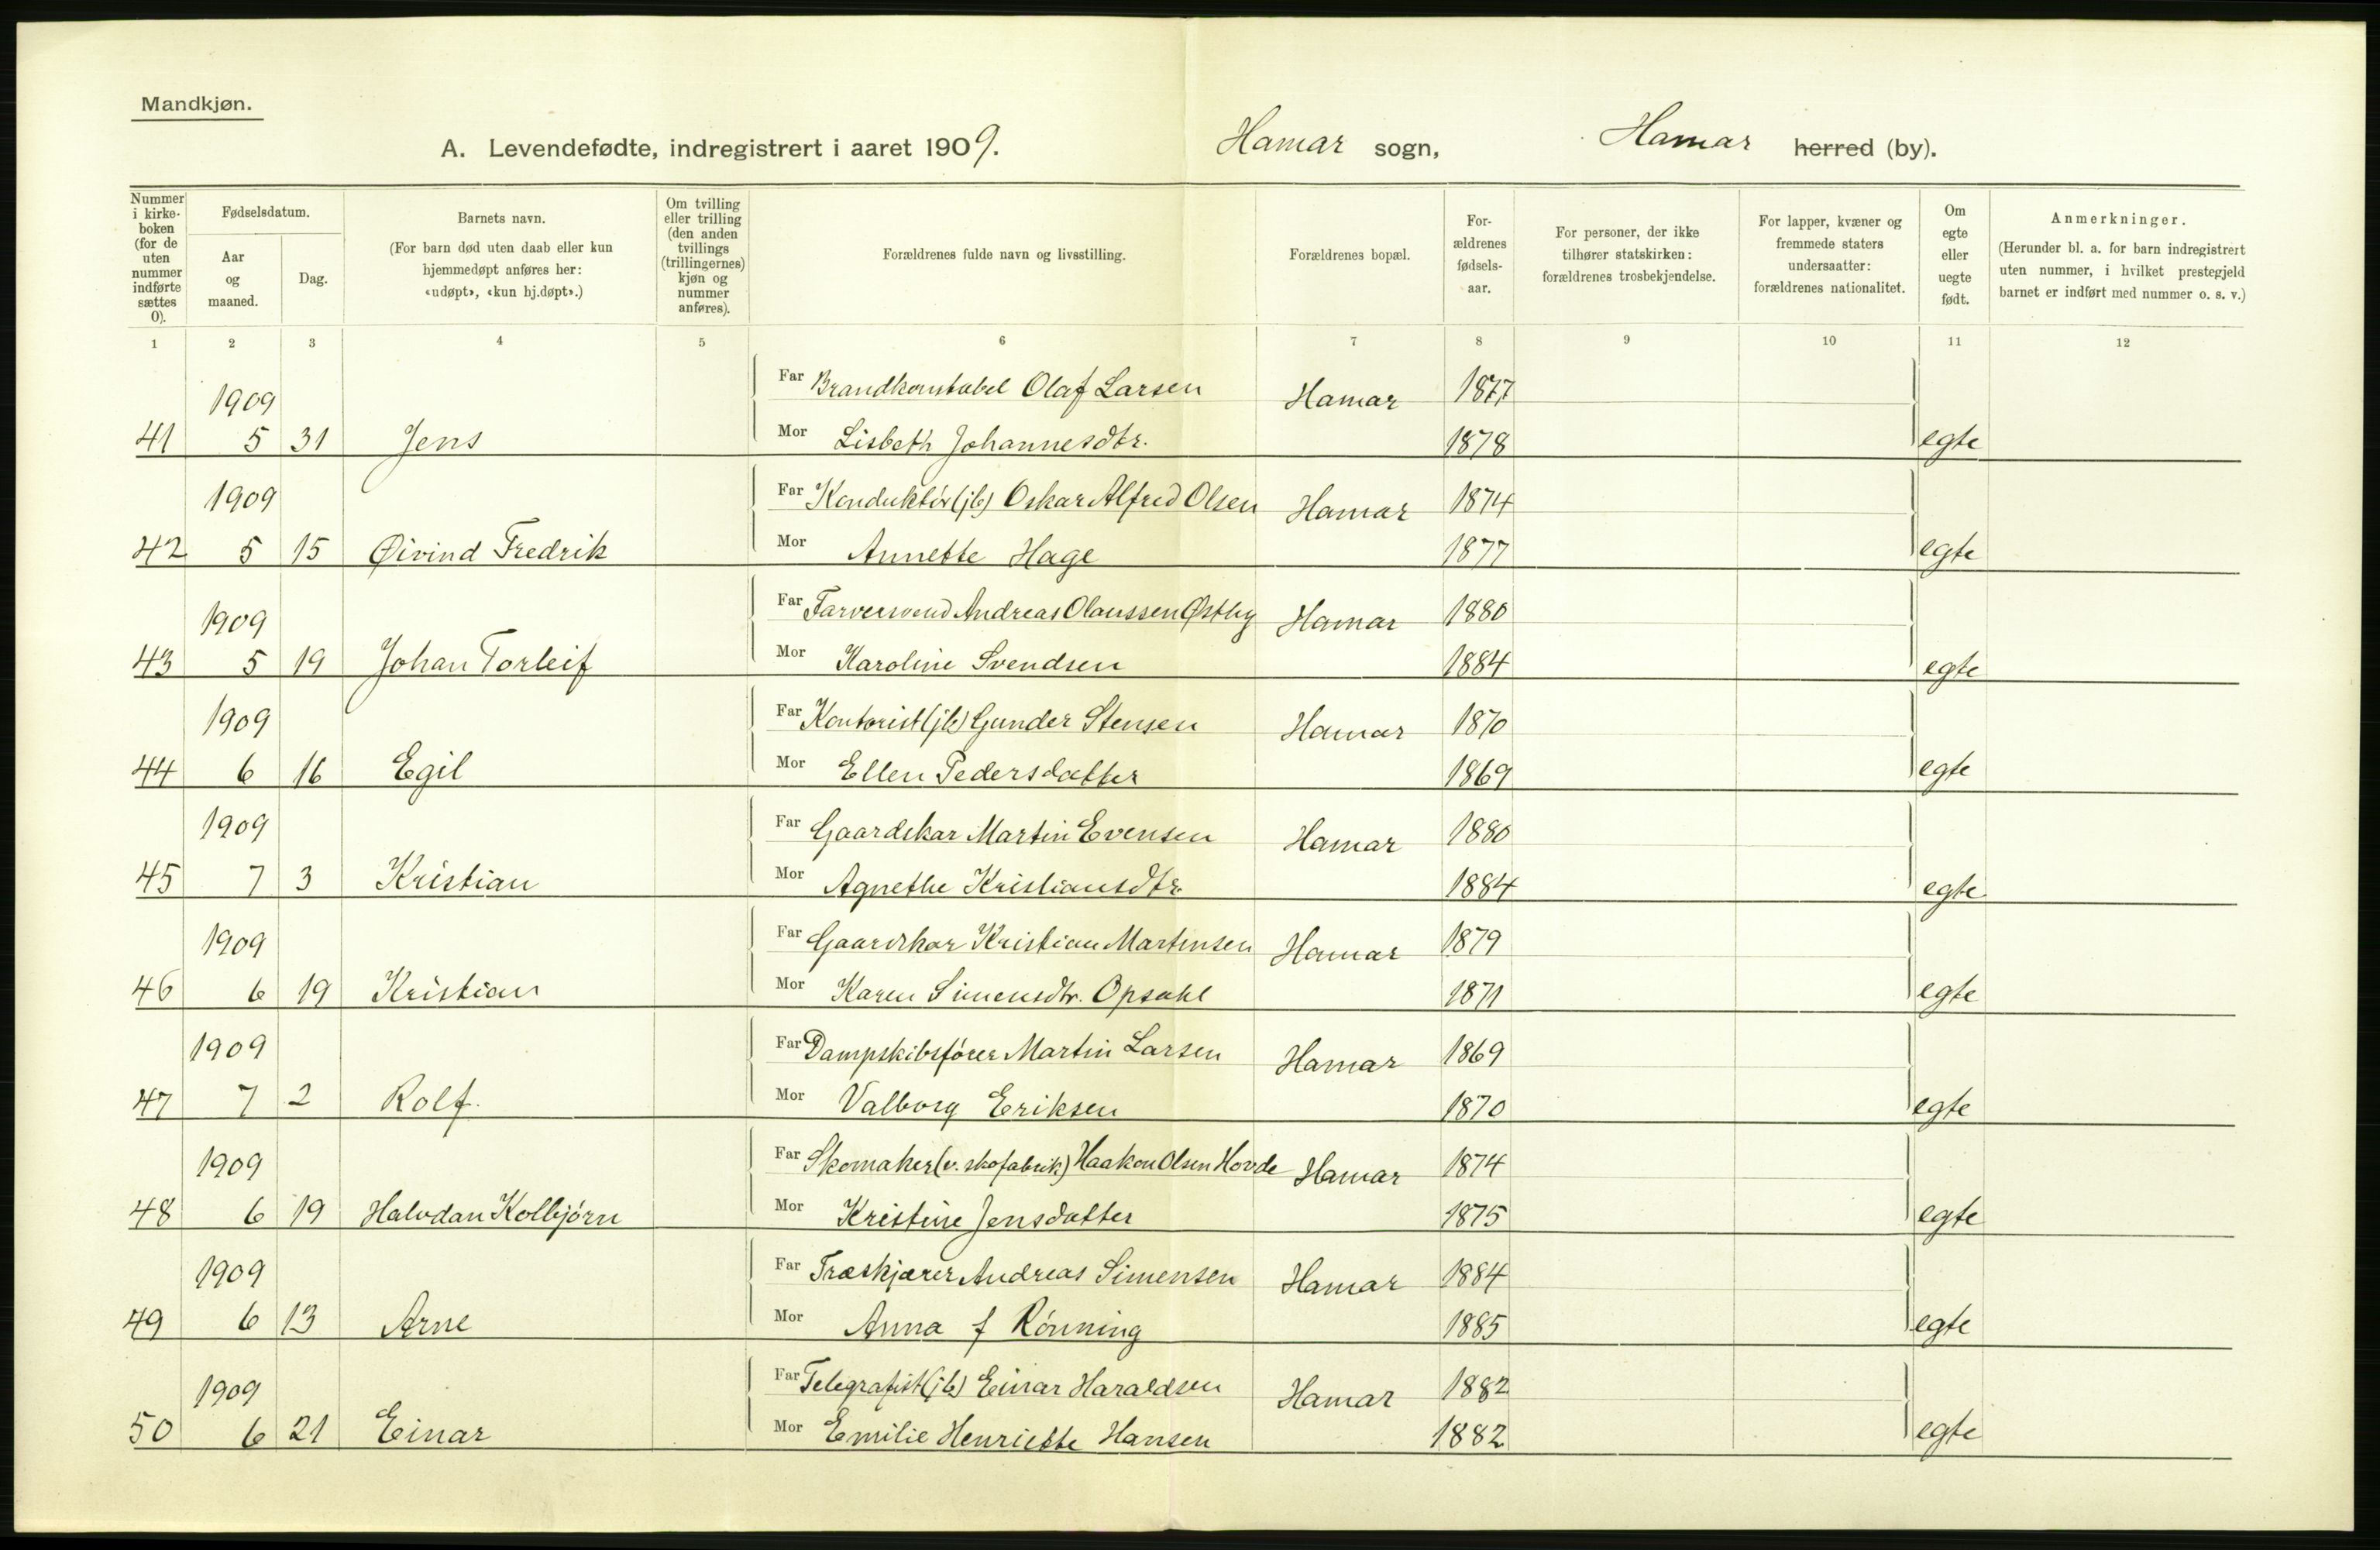 Mandkjøn.
A. Levendefødte, indregistrert i aaret 1909. Hamar sogn, Hamar herred (by).
Nummer i kirkeboken (for de uten nummer indførte sættes 0).
Fødselsdatum.
Aar og maaned.
Dag.
Barnets navn.
(For barn død uten daab eller kun hjemmedøpt anføres her: «udøpt», «kun hj.døpt».)
Om tvilling eller trilling (den anden tvillings (trillingernes) kjøn og nummer anføres).
Forældrenes fulde navn og livsstilling.
Forældrenes bopæl.
Forældrenes fødselsaar.
For personer, der ikke tilhører statskirken: forældrenes trosbekjendelse.
For lapper, kvæner og fremmede staters undersaatter: forældrenes nationalitet.
Om egte eller uegte født.
Anmerkninger.
(Herunder bl. a. for barn indregistrert uten nummer, i hvilket prestegjeld barnet er indført med nummer o. s. v.)
1 2 3 4 5 6 7 8 9 10 11 12
1909 Far Brandkonstabel Olaf Larsen Hamar 1877
41 5 31 Jens Mor Lisbeth Johannesdtr. 1878 egte
1909 Far Konduktör (jb) Oskar Alfred Olsen Hamar 1874
42 5 15 Øivind Fredrik Mor Annette Hage 1877 egte
1909 Far Farversvend Andreas Olaussen Østby Hamar 1880
43 5 19 Johan Torleif Mor Karoline Svendsen 1884 egte
1909 Far Kontorist (jb) Gunder Stensen Hamar 1870
44 6 16 Egil Mor Ellen Pedersdatter 1869 egte
1909 Far Gaardskar Martin Evensen Hamar 1880
45 7 3 Kristian Mor Agnethe Kristiansdtr. 1884 egte
1909 Far Gaardskar Kristian Martinsen Hamar 1879
46 6 19 Kristian Mor Karen Simensdtr. Opsahl 1871 egte
1909 Far Dampskibsfører Martin Larsen Hamar 1869
47 7 2 Rolf. Mor Valborg Eriksen 1870 egte
1909 Far Skomaker (v. skofabrik) Haakon Olsen Hovde Hamar 1874
48 6 19 Halvdan Kolbjörn Mor Kristine Jensdatter 1875 egte
1909 Far Træskjærer Andreas Simensen Hamar 1884
49 6 13 Arne Mor Anna f Rönning 1885 egte
1909 Far Telegrafist (jb) Einar Haraldsen Hamar 1882
50 6 21 Einar Mor Emilie Henriette Hansen 1882 egte